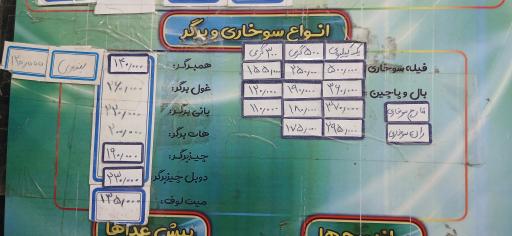 انواع سوخاری و برگر
یک کیلویی ۵۰۰ گرمی ۳۰۰ گرمی
فیله سوخاری: ۵۰۰,۰۰۰ ۲۵۰,۰۰۰ ۱۵۵,۰۰۰
بال و پاچین: ۳۶۰,۰۰۰ ۱۹۰,۰۰۰ ۱۲۰,۰۰۰
قارچ سوخاری ۳۷۰,۰۰۰ ۱۸۰,۰۰۰ ۱۱۰,۰۰۰
ران سوخاری ۲۹۵,۰۰۰ ۱۷۵,۰۰۰
همبرگر: ۱۴۰,۰۰۰
غول برگر:
بانی برگر:
هات برگر: ۲۰۰,۰۰۰
چیزبرگر: ۱۹۰,۰۰۰
دوبل چیزبرگر: ۲۳۰,۰۰۰
میت لوف: ۱۳۵,۰۰۰
پیش غذاها